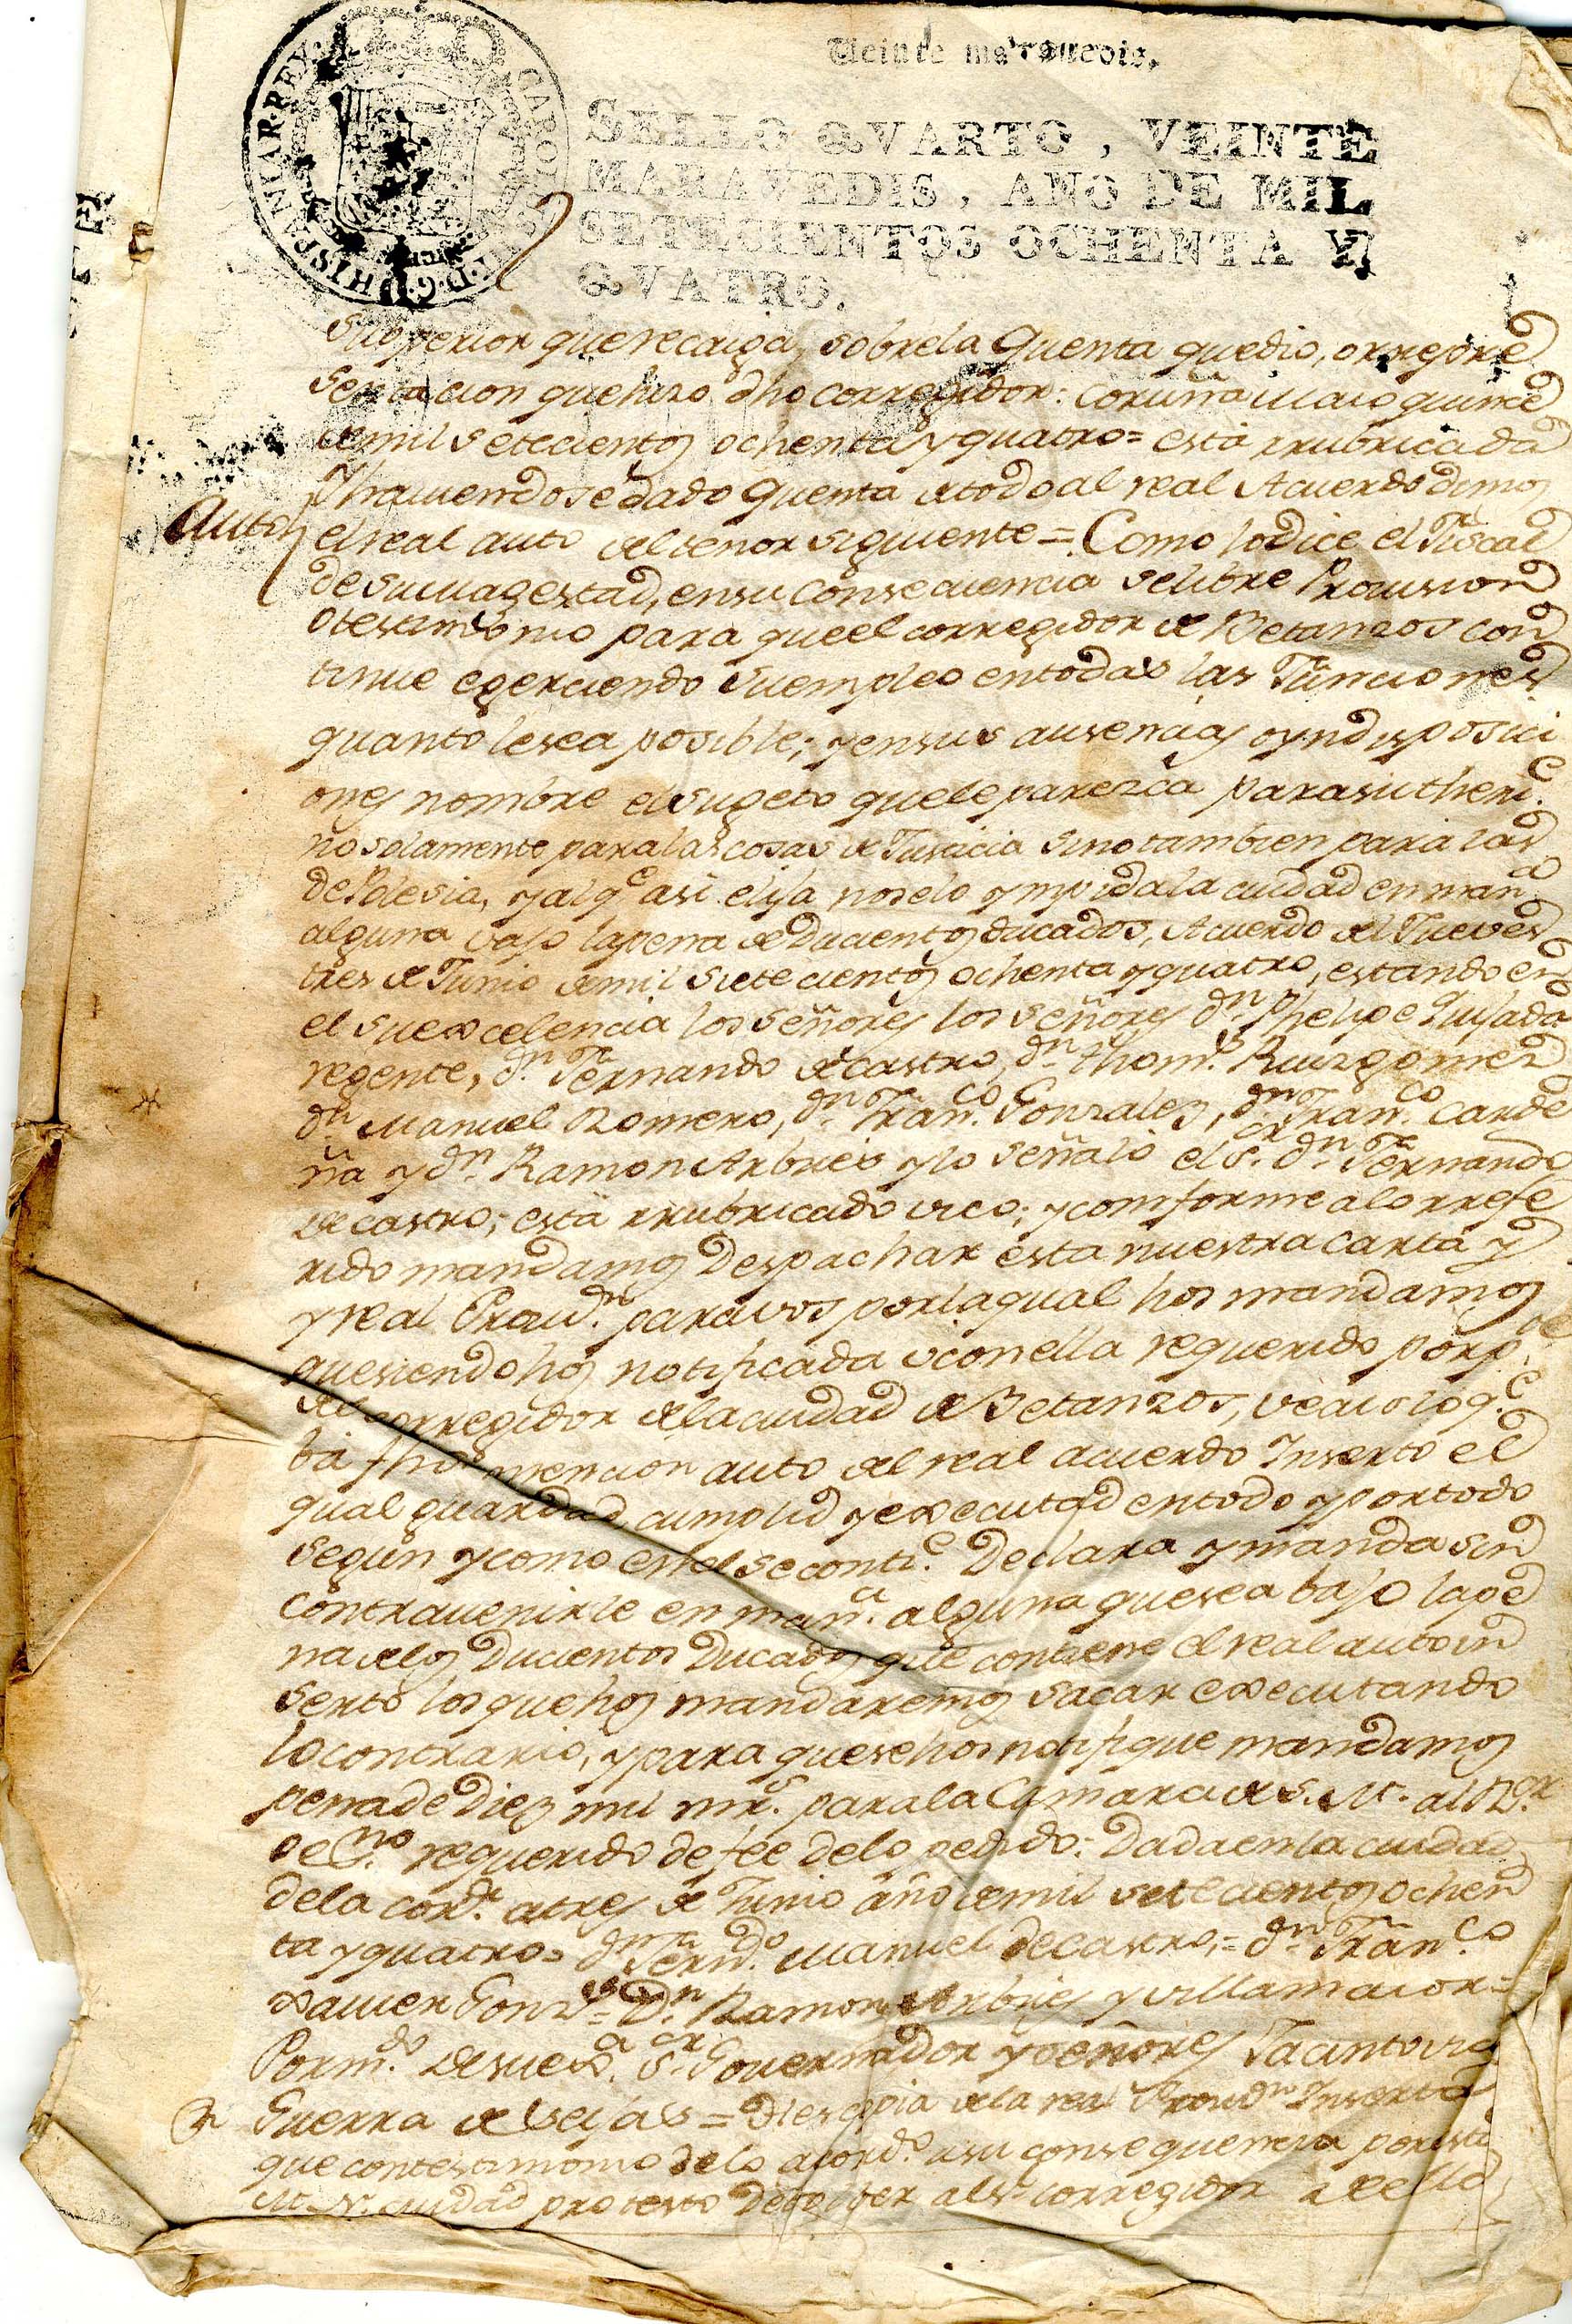 Veinte maravedis.
SELLO QVARTO, VEINTE
MARAVEDIS, AÑO DE MIL
SETECIENTOS OCHENTA Y
QVATRO.
HISPANIAR. REX. CAROLUS III D. G.
superior que recaiga, sobre la Quenta que dio, o rrepre
sentacion que hizo dho corregidor: Coruña Maio quince
de mil setecientos ochenta y quatro = está rrubricada
Auto
Y haviendose dado Quenta de todo al real Acuerdo dimos
el real auto del tenor siguiente = Como lo dice el Fiscal
de su magestad, en su Consecuencia se libre Provision
o testimonio para que el corregidor de Betanzos con
tinue egerciendo su empleo en todas las Funciones
quanto le sea posible; y en sus ausencias o yndisposici
ones nombre el sugeto que le parezca para su thenie.
no solamente para las cosas de Justicia sino tambien para las
de Polesia, y al qe asi elija no se lo ympida la ciudad en mana.
alguna vajo la pena de Ducientos ducados, Acuerdo del Jueves
tres de Junio de mil siete cientos ochenta y quatro, estando en
el su excelencia los señores los señores Dn. Phelipe Quijada
regente, Dn. Fernando de castro, Dn. thoms. Ruiz gomez
Dn. Manuel Romero, Dn. Franco. Gonzalez, Dn. Franco. Carde
ña y Dn. Ramon Arbies y lo señalo el Sr. Dn. Fernando
de castro; está rrubricado vico; y comforme a lo rrefe
rido mandamos Despachar esta nuestra carta y
y real Provn. para vos por la qual hos mandamos
que siendo hos notificada o con ella requerido por pe.
del corregidor de la ciudad de Betanzos, veais lo qe.
ba fho mencion auto del real acuerdo Inserto el
qual guardad cumplid y executad en todo y por todo
segun y como en el se contie. Declara y manda sin
contravenirle en mana. alguna que sea bajo la pe
na de los Ducientos Ducados que contiene el real auto in
serto los que hos mandaremos sacar executando
lo contrario, y para que se hos notifique mandamos
pena de Diez mil mrs. para la Camara de S. M. al Rr.
o eno. requerido de fee de lo pedido: Dada en la ciudad
de la corda. a tres de Junio año de mil setecientos ochen
ta y quatro = Dn. Fernando. Manuel de castro = Dn. Franco.
Xavier Gonzs. = Dn. Ramon Arbies y villamaior =
Por mdo. de su exa. Sr. Governador y señores Jacinto
Guerra de seijas = Es copia de la real Provn. Inserta
que con testimonio de lo acordo. a su consequencia por esta
M. N. ciudad protesto debolver al Sr. corregidor